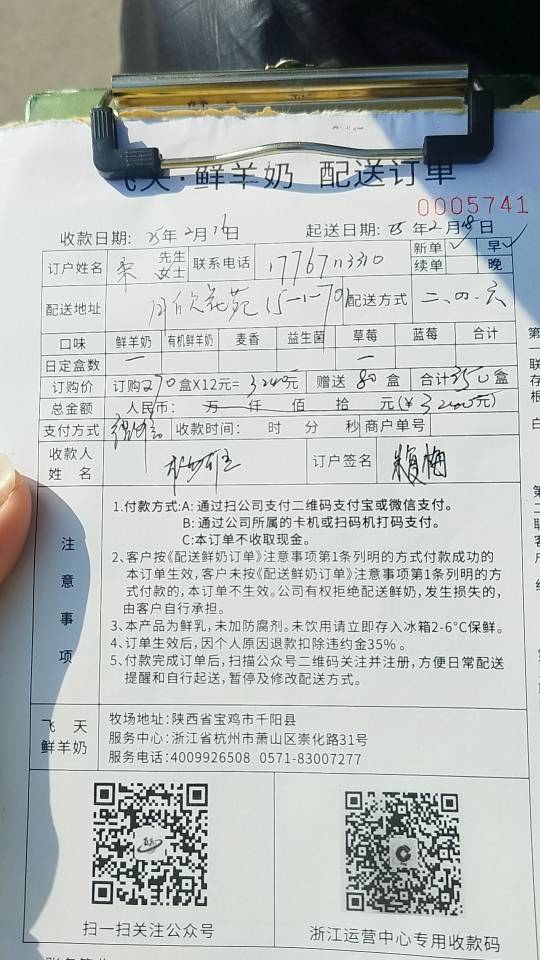 飞天·鲜羊奶 配送订单
0005741
收款日期: 25年2月16日 起送日期: 25年2月18日
订户姓名 先生 女士 联系电话 17767113310 新单 ✓ 早 ✓
续单 晚
配送地址 月欣花苑15-1-701 配送方式 二、四、六
口味 鲜羊奶 有机鲜羊奶 麦香 益生菌 草莓 蓝莓 合计
日定盒数 一 一
订购价 订购270盒X12元=3240元 赠送80盒 合计350盒
总金额 人民币: 万 仟 佰 拾 元(¥3240元)
支付方式 收款时间: 时 分 秒 商户单号
收款人
姓名 订户签名
注意事项
1.付款方式:A:通过扫公司支付二维码支付宝或微信支付。
B:通过公司所属的卡机或扫码机打码支付。
C:本订单不收取现金。
2、客户按《配送鲜奶订单》注意事项第1条列明的方式付款成功的
本订单生效,客户未按《配送鲜奶订单》注意事项第1条列明的方
式付款的,本订单不生效。公司有权拒绝配送鲜奶,发生损失的,
由客户自行承担。
3、本产品为鲜乳,未加防腐剂。未饮用请立即存入冰箱2-6°C保鲜。
4、订单生效后,因个人原因退款扣除违约金35%。
5、付款完成订单后,扫描公众号二维码关注并注册,方便日常配送
提醒和自行起送,暂停及修改配送方式。
飞天
鲜羊奶
牧场地址:陕西省宝鸡市千阳县
服务中心:浙江省杭州市萧山区崇化路31号
服务电话:4009926508 0571-83007277
扫一扫关注公众号
浙江运营中心专用收款码